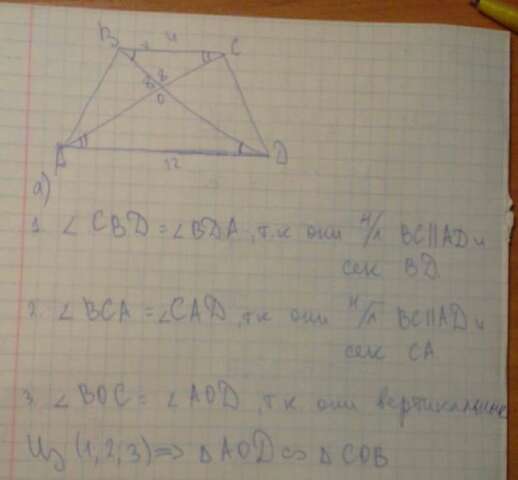 B 4 C
O
A 12 D
а)
1. ∠ CBD = ∠BDA, т.к они н/л BC||AD и
сек BD
2. ∠ BCA = ∠CAD, т.к они н/л BC||AD и
сек CA
3. ∠ BOC = ∠ AOD, т.к они вертикальные
Из (1,2,3) => △ AOD ∽ △ COB